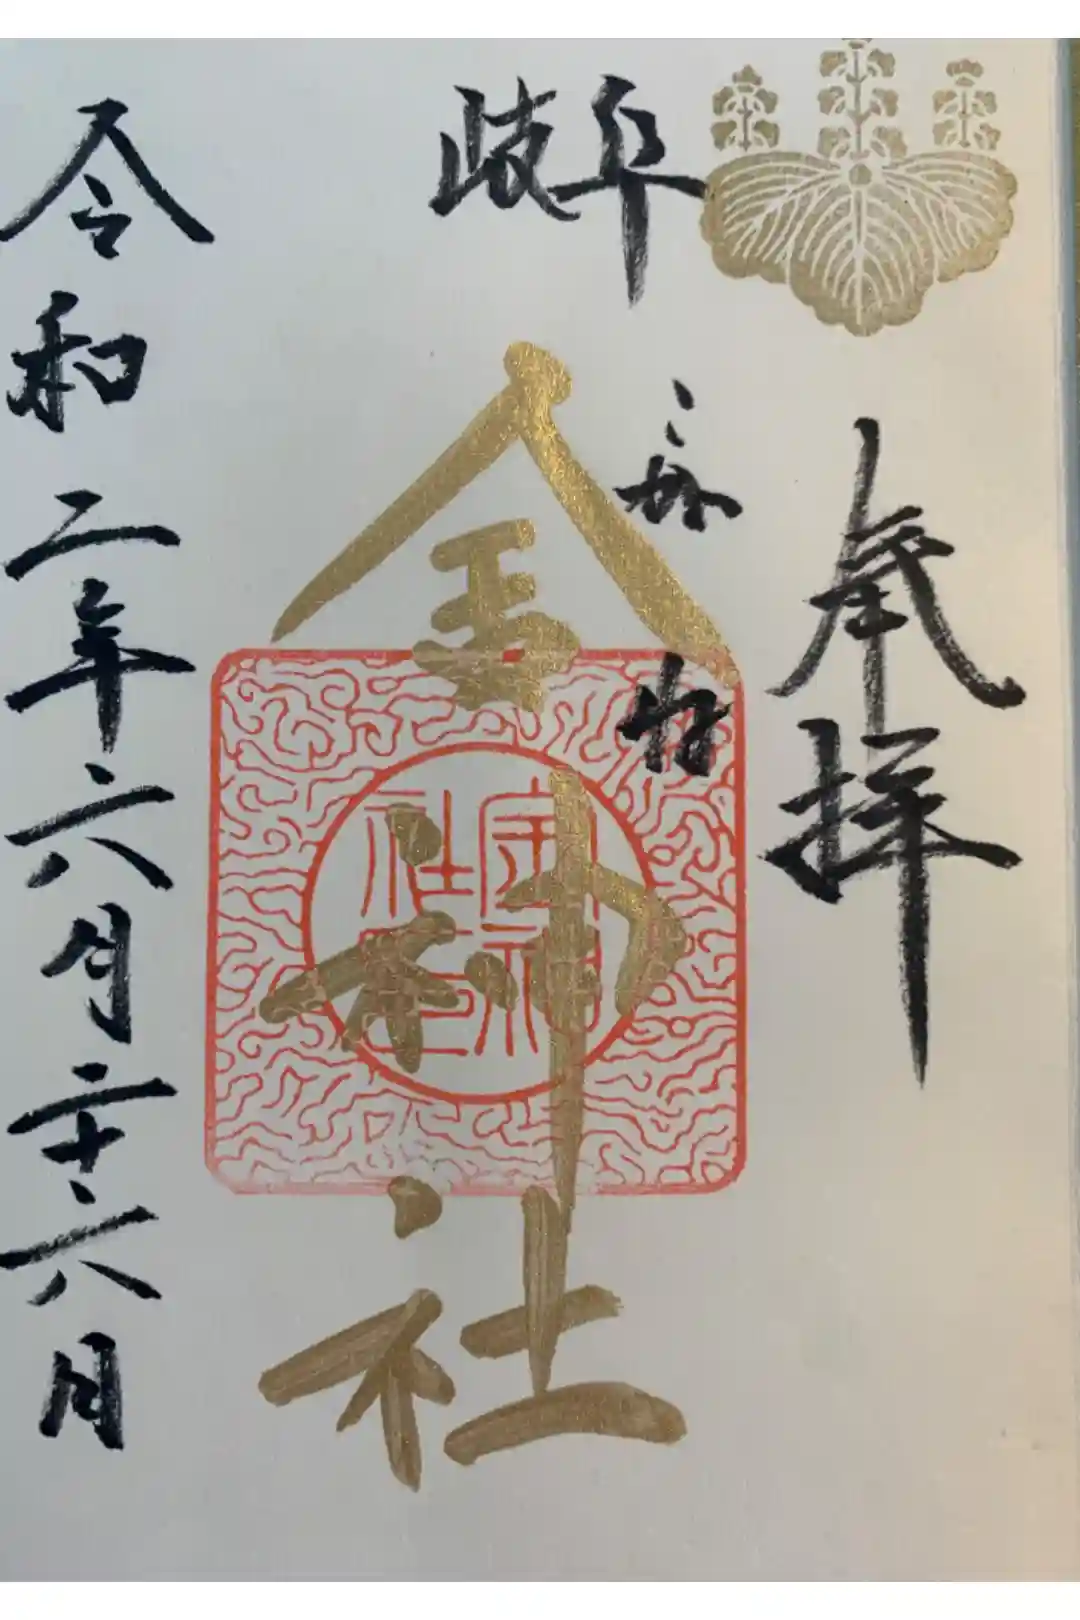 岐阜
奉拝
金神社
金神
社印
令和二年六月二十六日